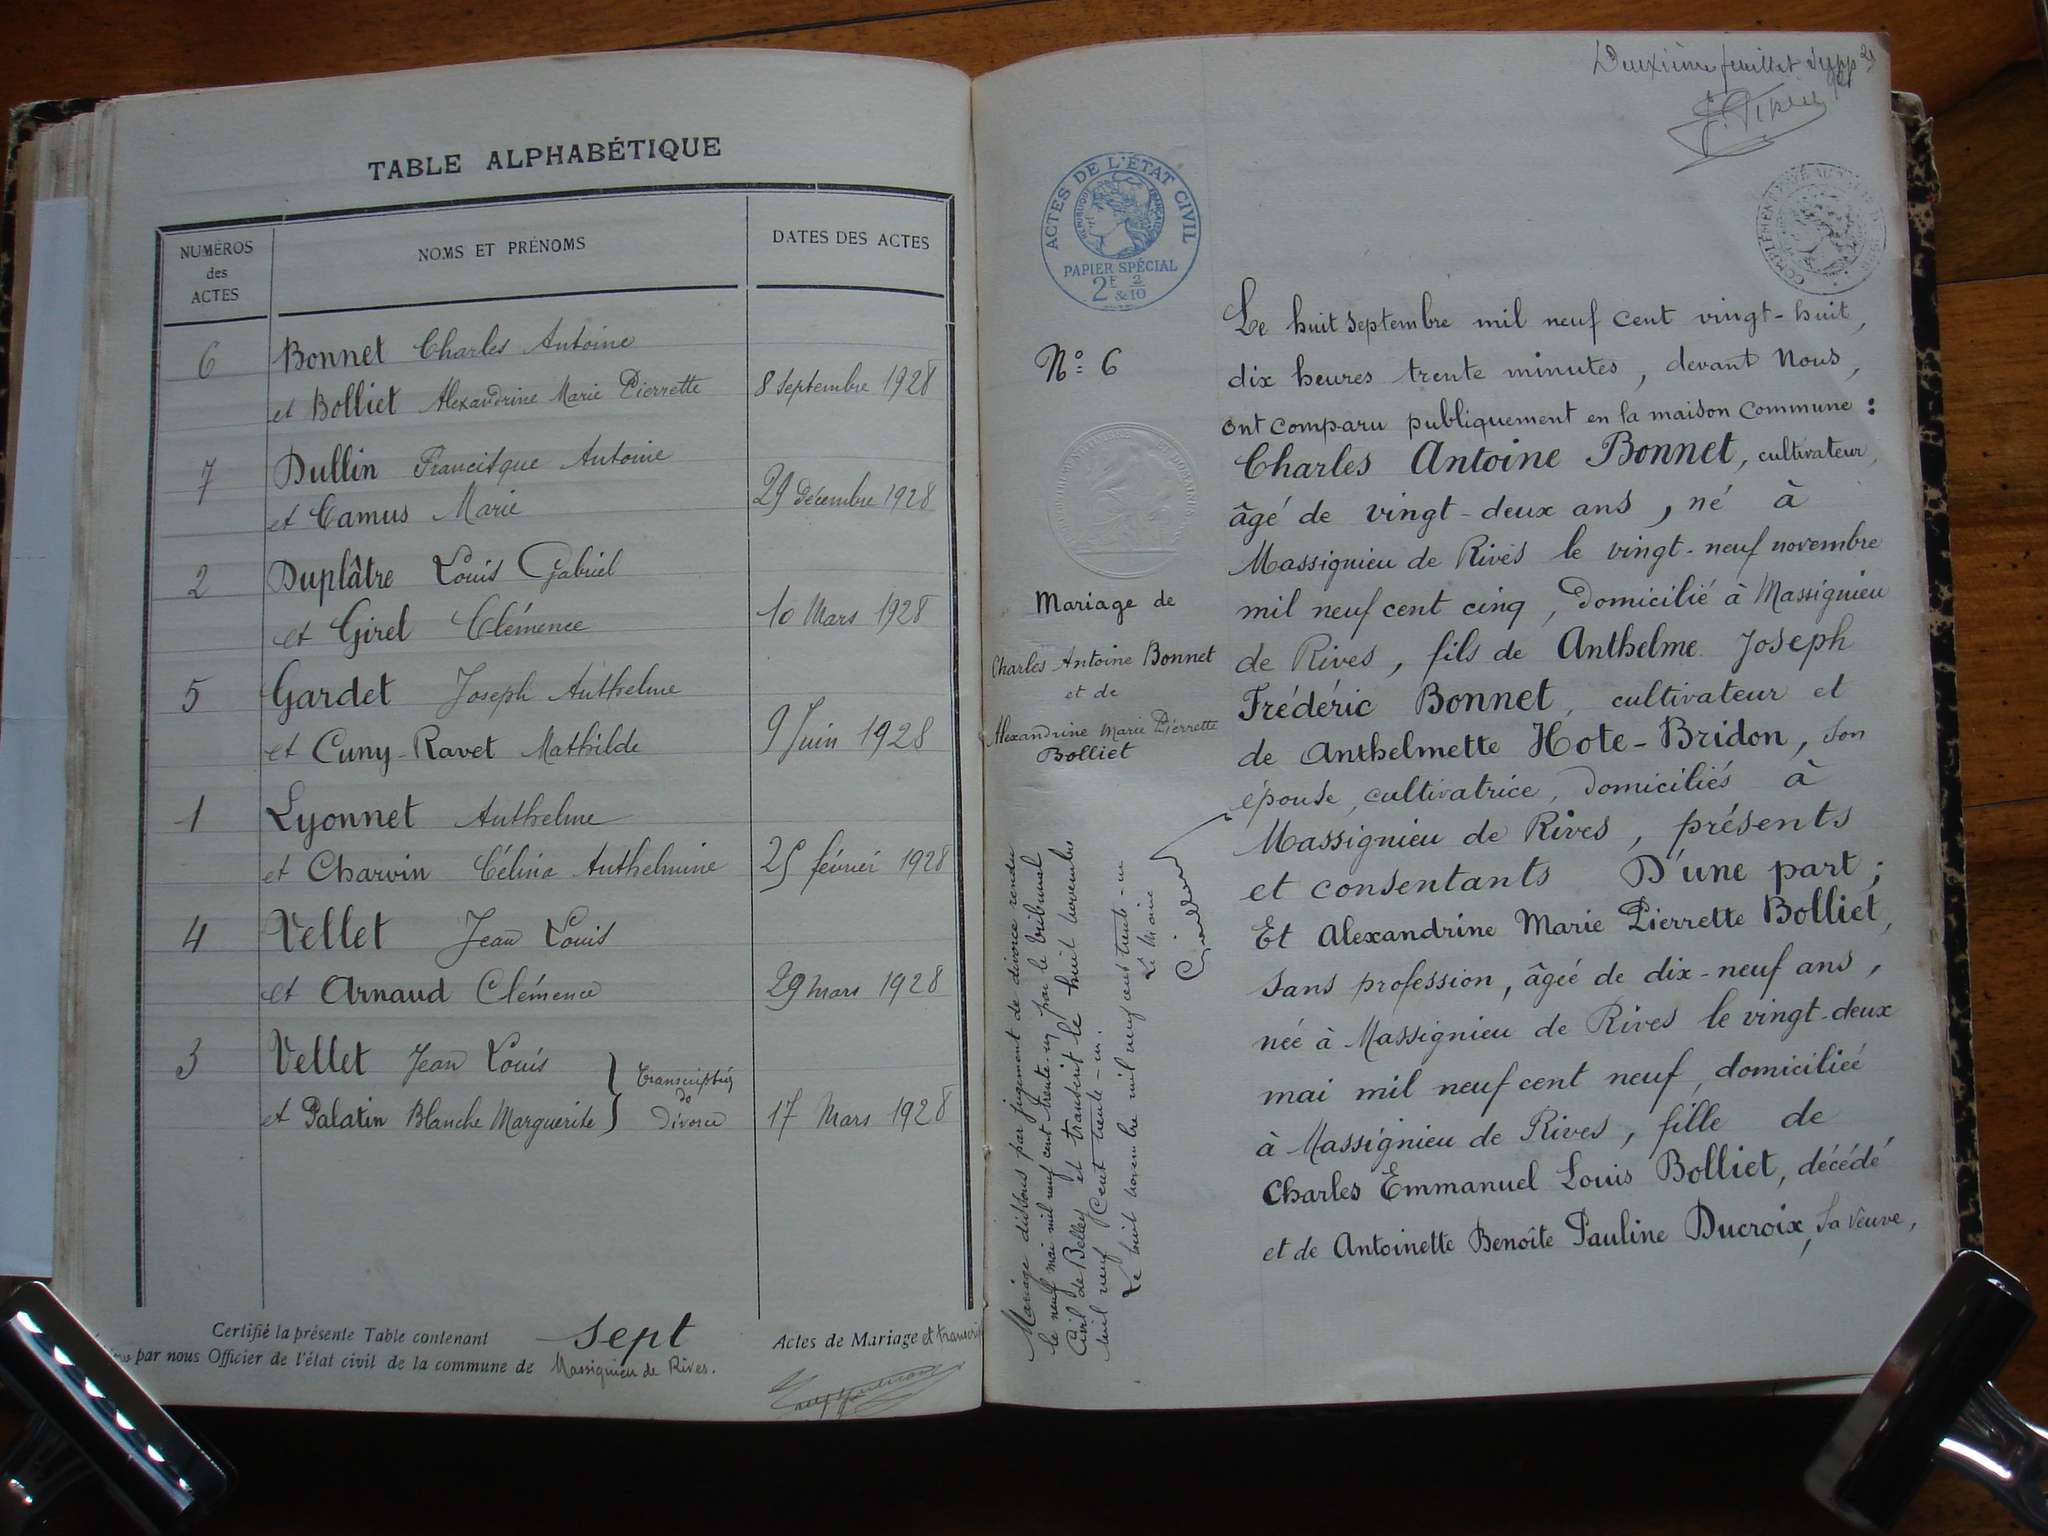 TABLE ALPHABÉTIQUE
NUMÉROS des ACTES
NOMS ET PRÉNOMS
DATES DES ACTES
6 Bonnet Charles Antoine
et Bolliet Alexandrine Marie Pierrette 8 septembre 1928
7 Dullin Francisque Antoine
et Camus Marie 29 décembre 1928
2 Duplâtre Louis Gabriel
et Girel Clémence 10 Mars 1928
5 Gardet Joseph Anthelme
et Cuny-Ravet Mathilde 9 Juin 1928
1 Lyonnet Anthelme
et Charvin Célina Anthelmine 25 février 1928
4 Vellet Jean Louis
et Arnaud Clémence 29 mars 1928
3 Vellet Jean Louis } Transcription
de
et Palatin Blanche Marguerite } Divorce 17 Mars 1928
Certifié la présente Table contenant sept Actes de Mariage et transcri
par nous Officier de l'état civil de la commune de Massignieu de Rives.
Deuxième feuillet supp
ACTES DE L'ÉTAT CIVIL
RÉPUBLIQUE FRANÇAISE
PAPIER SPÉCIAL
2E 2
&10
N° 6
Mariage de
Charles Antoine Bonnet
et de
Alexandrine Marie Pierrette
Bolliet
Mariage dissous par jugement de divorce rendu
le neuf mai mil neuf cent trente-un par le tribunal
Civil de Belley et transcrit le huit novembre
mil neuf cent trente-un.
Le huit novembre mil neuf cent trente-un
Le Maire
Le huit septembre mil neuf cent vingt-huit,
dix heures trente minutes, devant Nous,
ont comparu publiquement en la maison commune :
Charles Antoine Bonnet, cultivateur,
âgé de vingt-deux ans, né à
Massignieu de Rives le vingt-neuf novembre
mil neuf cent cinq, domicilié à Massignieu
de Rives, fils de Anthelme Joseph
Frédéric Bonnet, cultivateur et
de Anthelmette Hote-Bridon, son
épouse, cultivatrice, domiciliés à
Massignieu de Rives, présents
et consentants D'une part ;
Et Alexandrine Marie Pierrette Bolliet,
sans profession, âgée de dix-neuf ans,
née à Massignieu de Rives le vingt-deux
mai mil neuf cent neuf, domiciliée
à Massignieu de Rives, fille de
Charles Emmanuel Louis Bolliet, décédé
et de Antoinette Benoîte Pauline Ducroix, sa veuve,